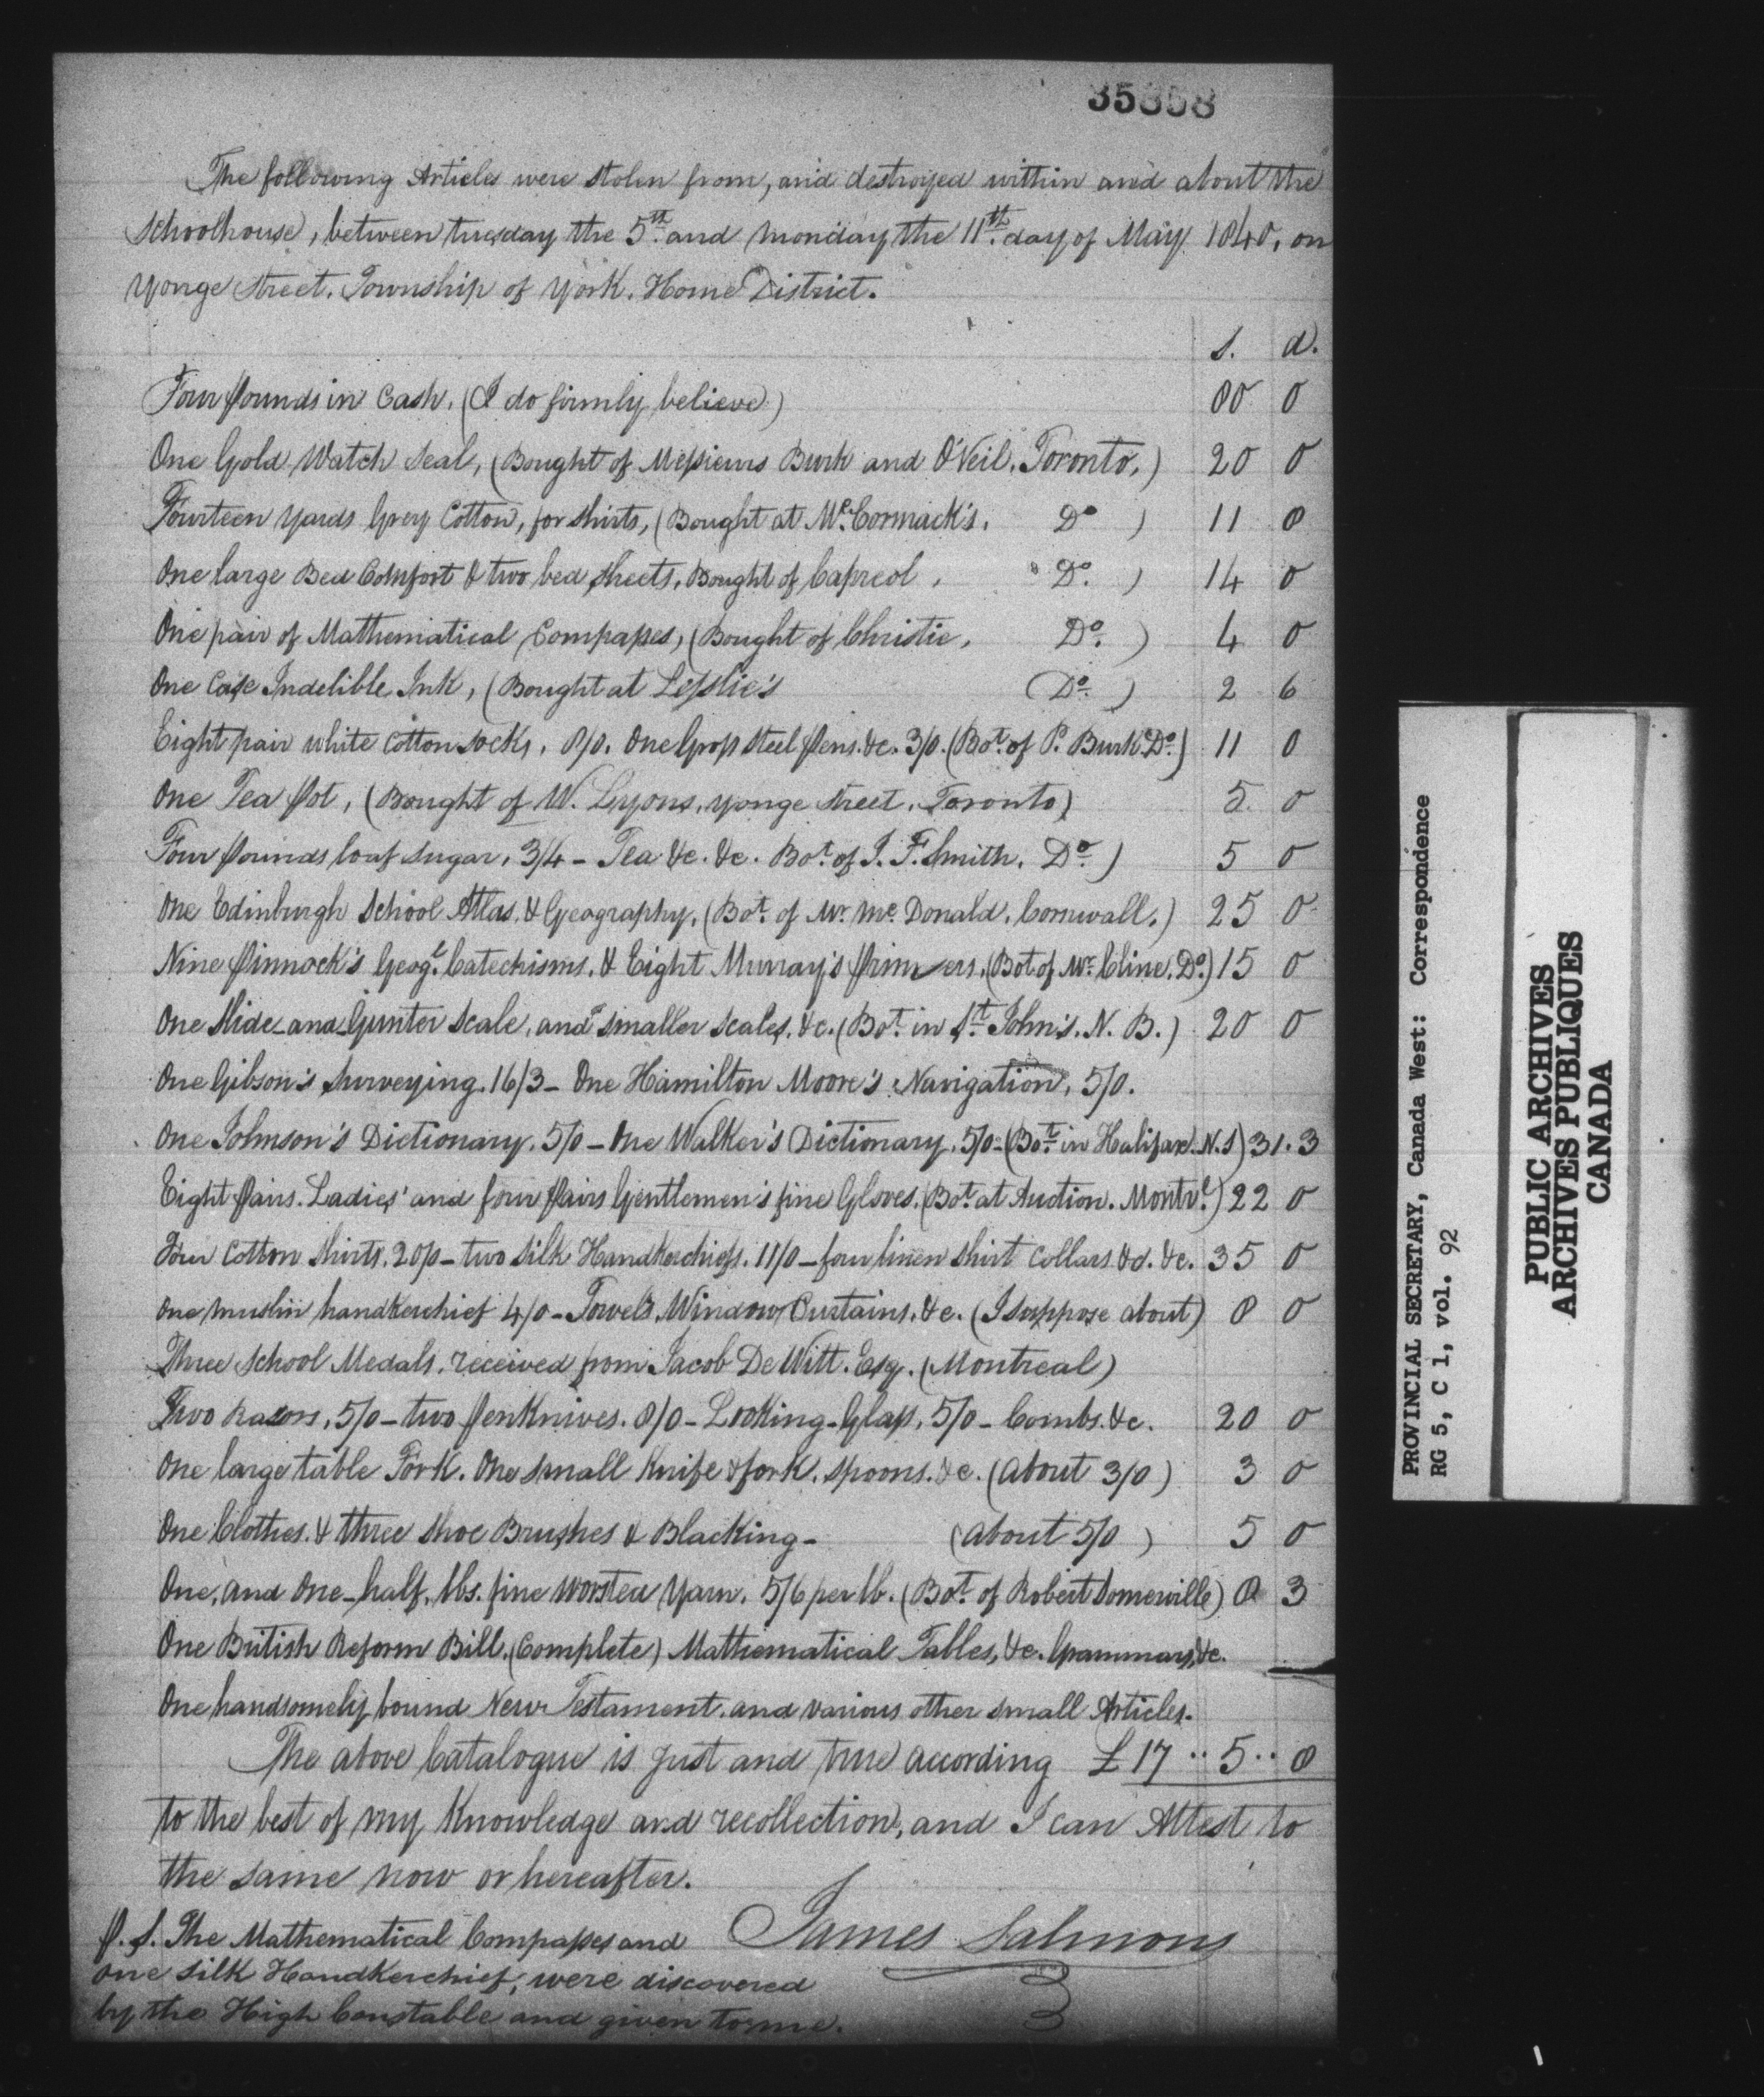 35358
The following Articles were stolen from, and destroyed within and about the
Schoolhouse, between tuesday the 5th. and monday the 11th. day of May 1840, on
Yonge Street. Township of York. Home District.
s. d.
Four Pounds in Cash. (I do firmly believe) 80 0
One Gold Watch Seal, (Bought of Messieurs Burk and O'Neil. Toronto.) 20 0
Fourteen Yards Grey Cotton, for shirts, (Bought at Mc.Cormack's. Do ) 11 8
One large Bed Comfort & two bed sheets. Bought of Capreol. Do. ) 14 0
One pair of Mathematical Compasses, (Bought of Christie. Do. ) 4 0
One Case Indelible Ink, (Bought at Lesslie's (Do. ) 2 6
Eight pair white cotton socks, 8/0. One Gross Steel Pens. &c. 3/0. (Bot. of P. Burk. Do.) 11 0
One Tea Pot, (Bought of W. Lyons, yonge street. Toronto) 5 0
Four Pounds loaf sugar, 3/4 - Tea &c. &c. Bot. of J. F. Smith. Do. ) 5 0
One Edinburgh School Atlas, & Geography, (Bot. of Mr. Mc. Donald. Cornwall.) 25 0
Nine Pinnock's Geogl. Catechisms. & Eight Murray's Primers. (Bot. of Mr. Cline. Do.) 15 0
One Slide_and_Gunter Scale, and smaller scales, &c. (Bot. in St. John's. N. B.) 20 0
One Gibson's Surveying. 16/3 - One Hamilton Moore's Navigation, 5/0.
One Johnson's Dictionary. 5/0 - One Walker's Dictionary. 5/0 - (Bot. in Halifax. N.S) 31. 3
Eight Pairs. Ladies' and four Pairs Gentlemen's fine Gloves. (Bot. at Auction. Montrl.) 22 0
Four Cotton Shirts. 20/0 - two Silk Handkerchiefs. 11/0 - four linen shirt Collars &c. &c. 35 0
One muslin handkerchief 4/0 - Towels, Window Curtains. &c. (I suppose about) 8 0
Three School Medals. received from Jacob De Witt. Esq. (Montreal)
Two Razors, 5/0 - two PenKnives. 8/0 - Looking-Glass, 5/0 - Combs. &c. 20 0
One large table Fork. One small Knife & fork. spoons. &c. (About 3/0) 3 0
One Clothes. & three Shoe Brushes & Blacking - (About 5/0 ) 5 0
One, and One-half, lbs. fine worsted Yarn. 5/6 per lb. (Bot. of Robert Somerville) 8 3
One British Reform Bill. (Complete) Mathematical Tables, &c. Grammars, &c.
One handsomely bound New Testament. and various other small Articles.
The above Catalogue is just and true according £ 17 .. 5 .. 8
to the best of my Knowledge and recollection, and I can Attest to
the same now or hereafter.
James Salmons
P. S. The Mathematical Compasses and
one silk Handkerchief, were discovered
by the High Constable and given to me.
PROVINCIAL SECRETARY, Canada West: Correspondence
RG 5, C 1, vol. 92
PUBLIC ARCHIVES
ARCHIVES PUBLIQUES
CANADA